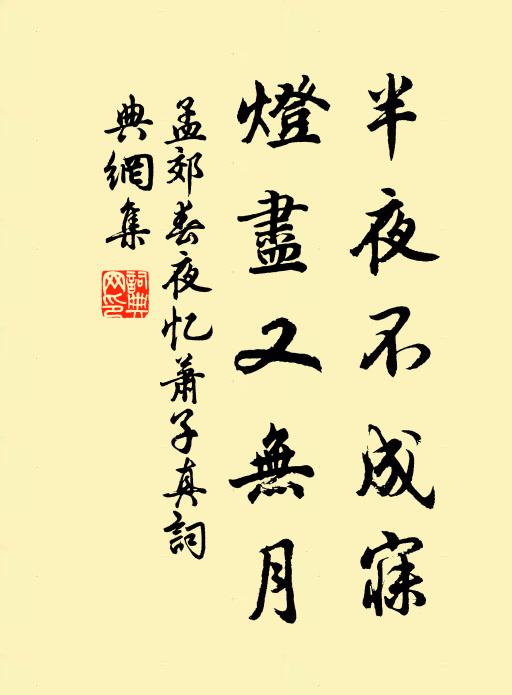 半夜不成寐
燈盡又無月
孟郊春夜忆蕭子真詞
典網集
詞典网印